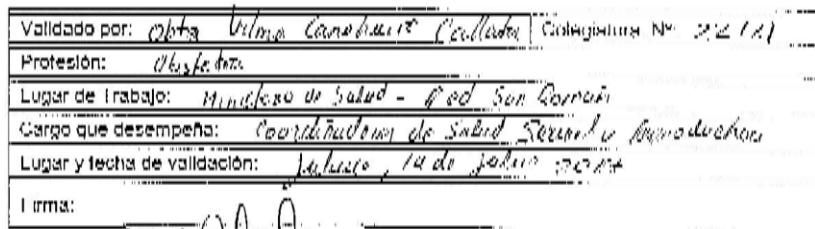 Validado por: Obta Vilma Canahuire Ccallata Colegiatura Nº:
Profesión: Obstetra
Lugar de Trabajo: Ministerio de Salud - Red San Román
Cargo que desempeña: Coordinadora de Salud Sexual y Reproductiva
Lugar y fecha de validación: Juliaca, 14 de julio
Firma: